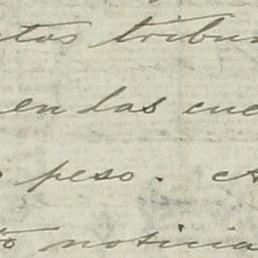 tos tribu
en las cue
peso. A
to noticia